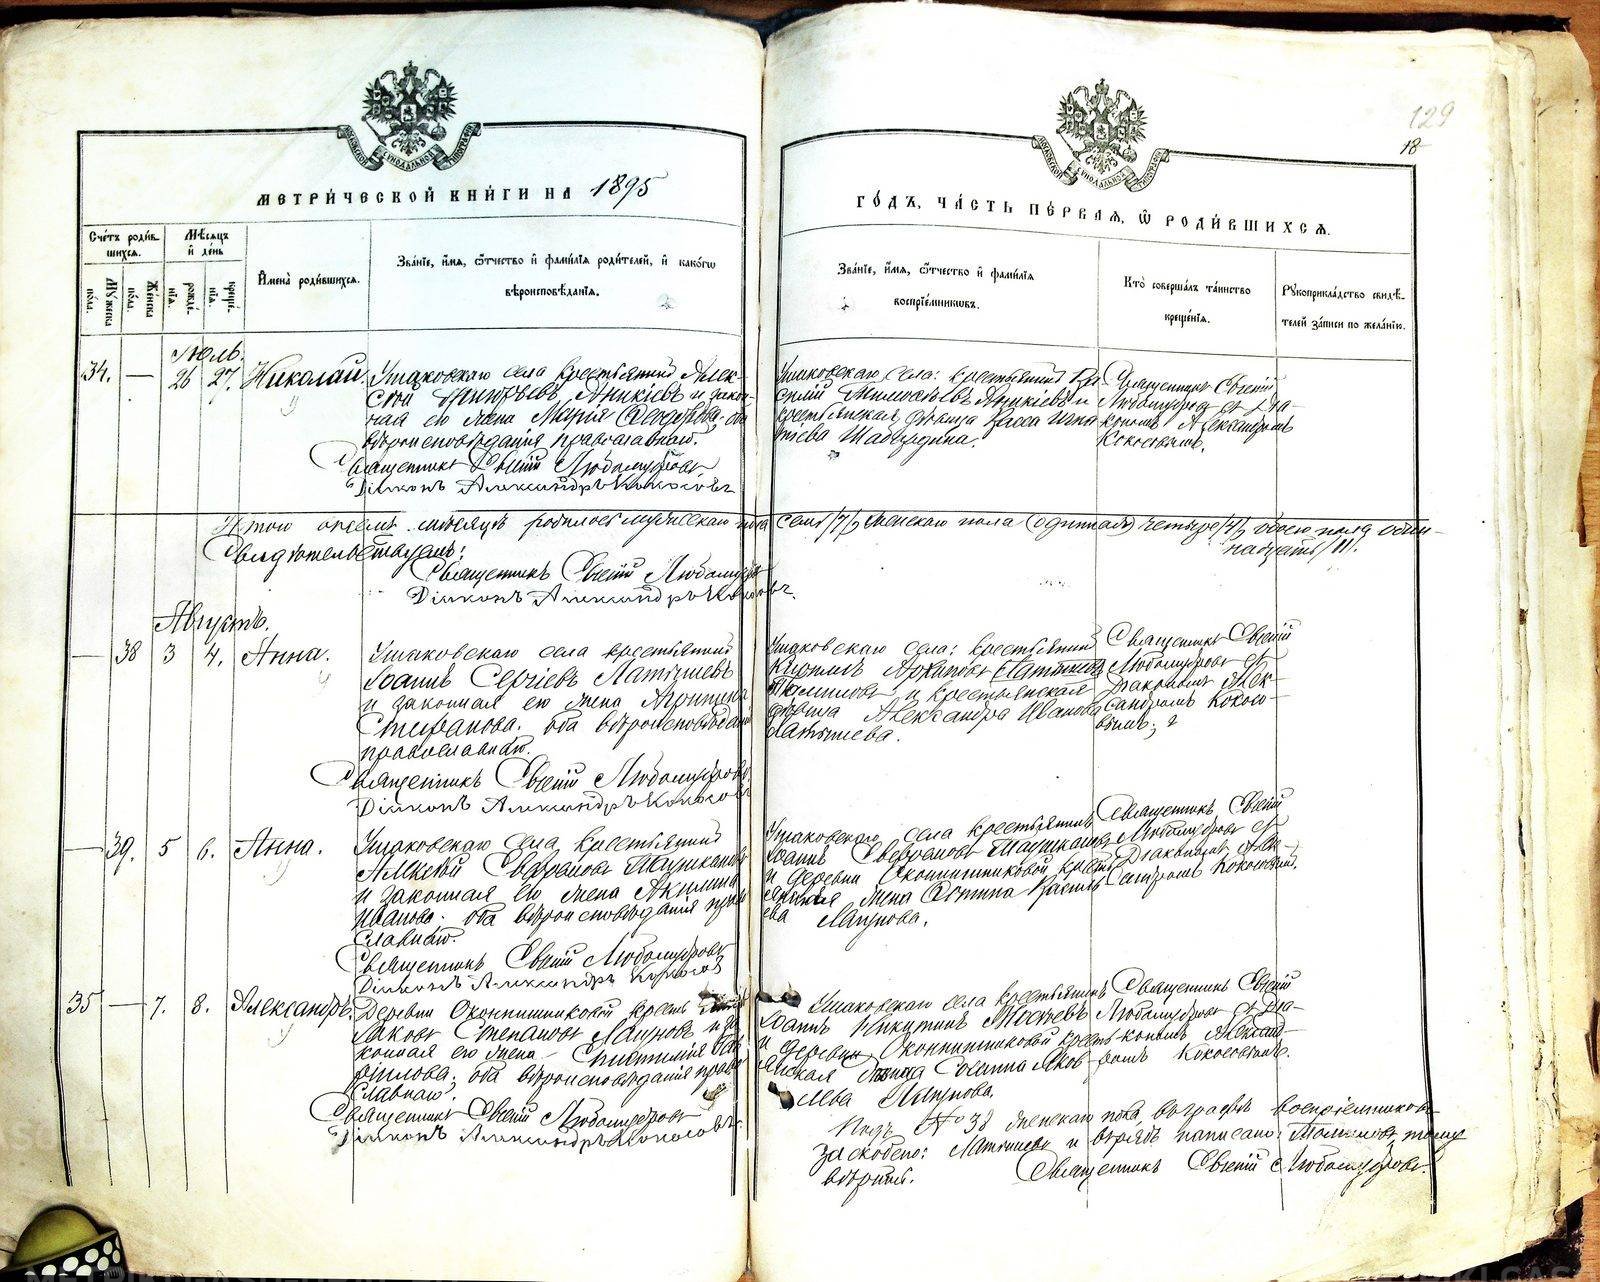 129
18
МЕТРИ́ЧЕСКОЙ КНИ́ГИ НА 1895
ГО́ДЪ, ЧА́СТЬ ПЕ́РВАѦ, Ѽ РОДИ́ВШИХСѦ.
МОСКОВСКОЙ СѴНОДАЛЬНОЙ ТИПОГРАФІИ
Сче́тъ роди́в-
шихся.
Мѣ́сяцъ
и҆ де́нь
Му́жеска по́ла.
Же́нска по́ла.
рожде́нїя.
креще́нїя.
И҆мена̀ роди́вшихся.
Зва́нїе, и҆́мя, ѻ҆́тчество и҆ фами́лїя роди́телей, и҆ како́гѡ
вѣроисповѣ́данїя.
Зва́нїе, и҆́мя, ѻ҆́тчество и҆ фами́лїя
воспрїе́мниковъ.
Кто̀ соверша́лъ та́инство
креще́нїя.
Рꙋкоприкла́дство свидѣ́-
телей за́писи по жела́нїю.
Іюль.
34. — 26 27. Николай.
Ушаковскаго села крестьянинъ Алек-
сѣй Аникіевъ и закон-
ная его жена Марія Ѳеодорова, оба
вѣроисповѣданія православнаго.
Священникъ Евгеній Любомудровъ
Діаконъ Александръ Кокосовъ
Ушаковскаго села: крестьянинъ Ва-
силій Тимоѳеевъ Аникіевъ и
крестьянская дѣвица
Священникъ Евгеній
Любомудровъ съ Діа-
кономъ Александромъ
Кокосовымъ.
Итого въ мѣсяцѣ родилось мужескаго пола семь /7/, женскаго пола (одиннадц) четыре /4/, обоего пола один-
надцать /11/.
Свидѣтельствуемъ:
Священникъ Евгеній Любомудровъ
Діаконъ Александръ Кокосовъ.
Августъ.
— 38 3 4. Анна.
Ушаковскаго села крестьянинъ
Іоаннъ Сергіевъ Латышевъ
и законная его жена Агрипина
Стефанова, оба вѣроисповѣданія
православнаго.
Священникъ Евгеній Любомудровъ
Діаконъ Александръ Кокосовъ
Ушаковскаго села: крестьянинъ
Кириллъ Архиповъ (Латышевъ)
и крестьянская
дѣвица Александра Иванова
Латышева.
Священникъ Евгеній
Любомудровъ съ
Діакономъ Алек-
сандромъ Кокосо-
вымъ;
— 39. 5 6. Анна.
Ушаковскаго села крестьянинъ
Алексѣй
и законная его жена Акилина
Иванова, оба вѣроисповѣданія право-
славнаго.
Священникъ Евгеній Любомудровъ
Діаконъ Александръ Кокосовъ
Ушаковскаго села крестьянинъ
Іоаннъ
и деревни Оконишниковой кресть-
янская жена Василь-
ева Лагунова.
Священникъ Евгеній
Любомудровъ съ
Діакономъ Алек-
сандромъ Кокосовымъ.
35 — 7. 8. Александръ.
Деревни Оконишниковой крестьянинъ
Яковъ Степановъ Лагуновъ и за-
конная его жена Гав-
рилова, оба вѣроисповѣданія право-
славнаго.
Священникъ Евгеній Любомудровъ
Діаконъ Александръ Кокосовъ.
Ушаковскаго села крестьянинъ
Іоаннъ Никитинъ
и деревни Оконишниковой кресть-
янская дѣвица Іоанна Яков-
лева Лагунова.
Священникъ Евгеній
Любомудровъ съ Діа-
кономъ Александ-
ромъ Кокосовымъ.
Подъ № 38 женскаго пола, въ графѣ воспріемниковъ
заскоблено: Латышевъ и вѣрнѣ написано: тому
вѣрить. Священникъ Евгеній Любомудровъ.